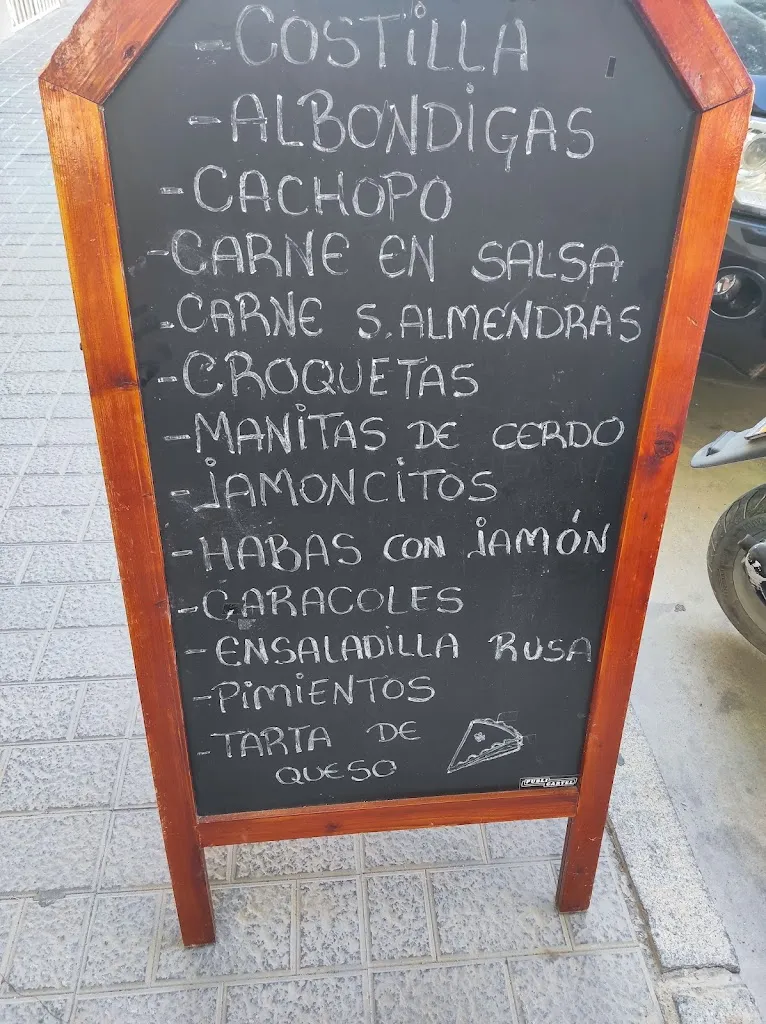 -COSTILLA
-ALBONDIGAS
-CACHOPO
-CARNE EN SALSA
-CARNE S.ALMENDRAS
-CROQUETAS
-MANITAS DE CERDO
-JAMONCITOS
-HABAS CON JAMÓN
-CARACOLES
-ENSALADILLA RUSA
-PIMIENTOS
-TARTA DE
QUESO
PUBLI CARTEL